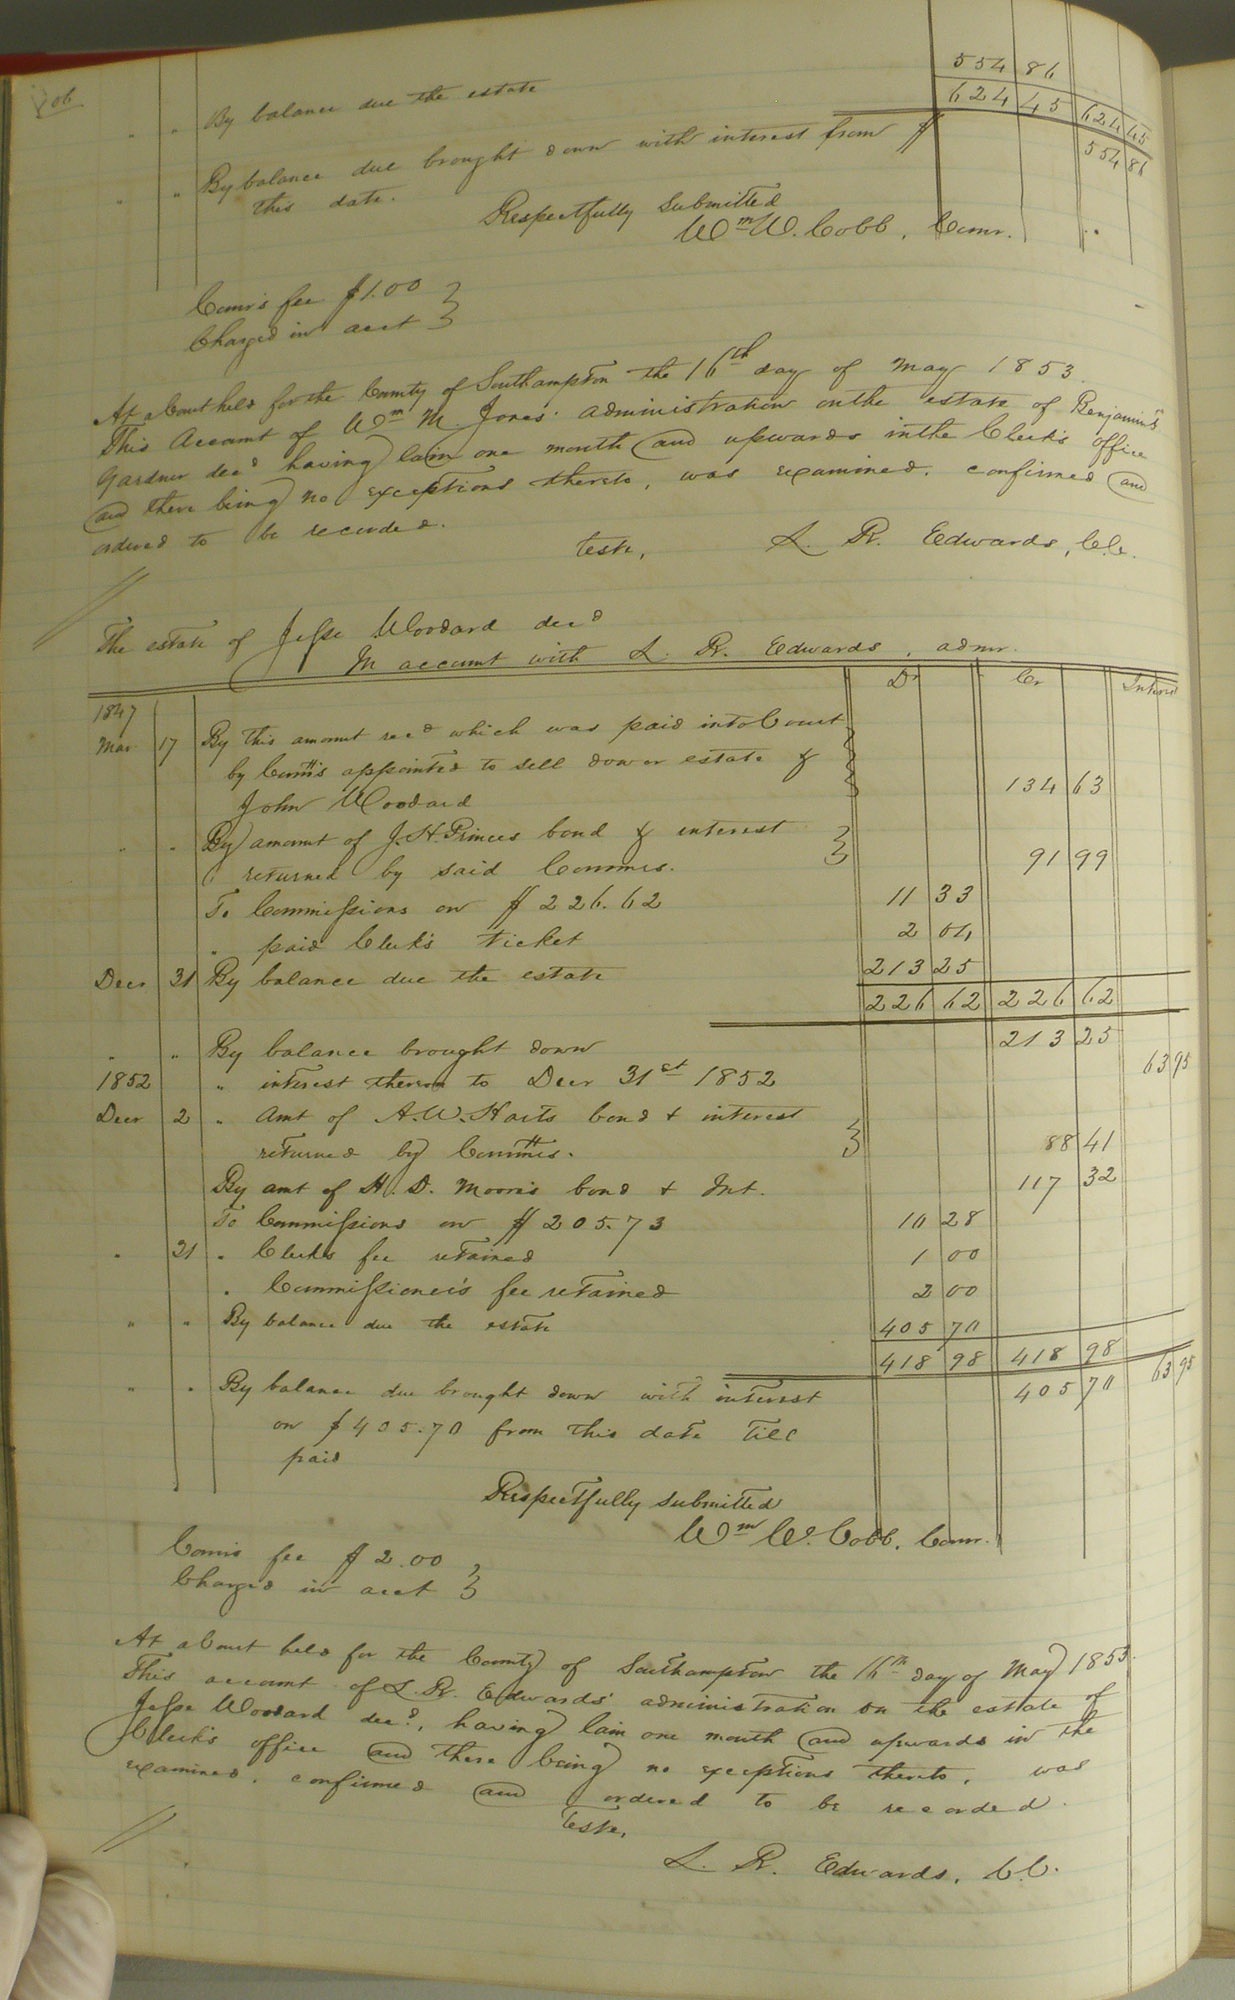 " " By balance due the estate 554 86
624 45 624 45
" " By balance due brought down with interest from $ 554 86
this date.
Respectfully Submitted
Wm W. Cobb, Comr.
Comr's fee $1.00
Charged in acct
At a Court held for the County of Southampton the 16th day of May 1853.
This Account of Wm M. Jones' administration on the estate of Benjamin
Gardner decd having lain one month and upwards in the Clerk's office
and there being no exceptions thereto, was examined, confirmed and
ordered to be recorded.
Teste, L. R. Edwards, C.C.
The estate of Jesse Woodard decd
In account with L. R. Edwards, admr.
Dr Cr Interest
1847
Mar 17 By this amount recd which was paid into Court
by Commrs appointed to sell dower estate of
John Woodard 134 63
" " By amount of J. H. Princes bond & interest
returned by said Commrs. 91 99
To Commissions on $226.62 11 33
" paid Clerk's ticket 2 04
Decr 31 By balance due the estate 213 25
226 62 226 62
" " By balance brought down 213 25
1852 " interest thereon to Decr 31st 1852 63 95
Decr 2 " Amt of A. W. Harts bond & interest
returned by Commrs. 88 41
By amt of H. D. Moore's bond & Int. 117 32
To Commissions on $205.73 10 28
" 21 " Clerks fee retained 1 00
" Commissioner's fee retained 2 00
" " By balance due the estate 405 70
418 98 418 98 63 95
" " By balance due brought down with interest 405 70
on $405.70 from this date till
paid
Respectfully submitted
Wm W. Cobb, Comr.
Comrs fee $2.00
Charged in acct
At a Court held for the County of Southampton the 16th day of May 1853.
This account of L. R. Edwards' administration on the estate of
Jesse Woodard decd, having lain one month and upwards in the
Clerk's office and there being no exceptions thereto, was
examined, confirmed and ordered to be recorded.
Teste,
L. R. Edwards, C.C.